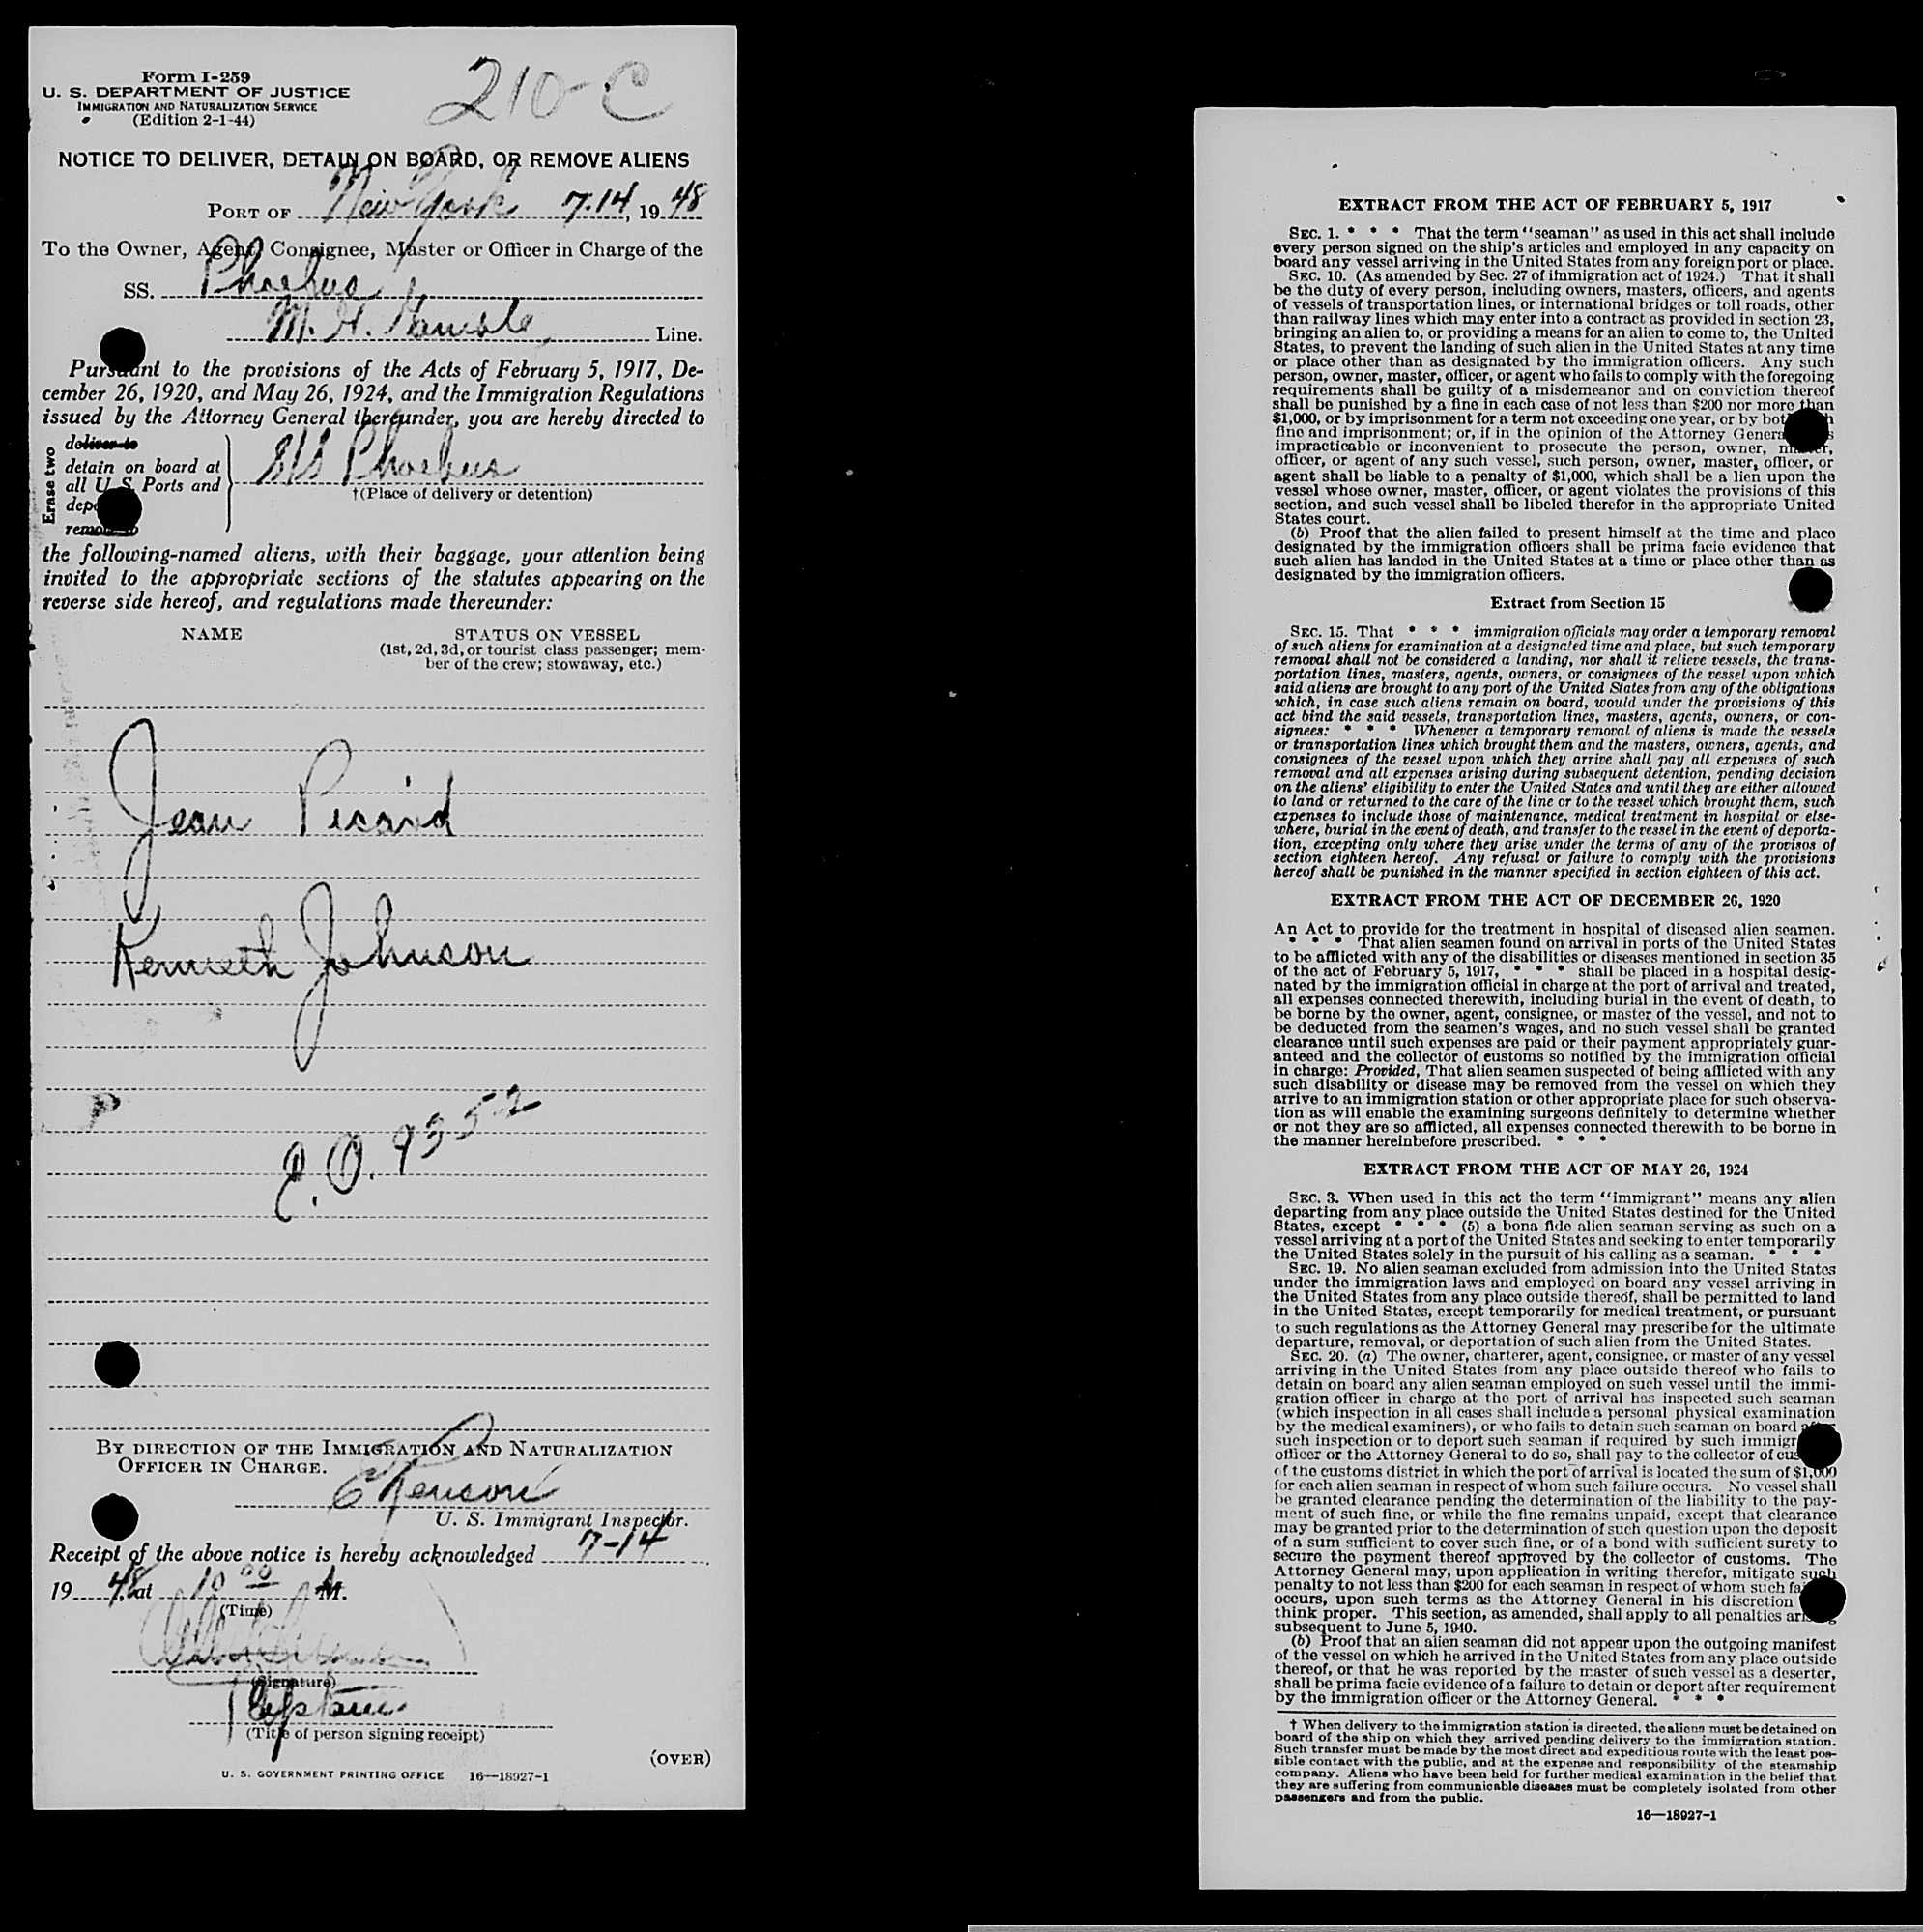 210-C
Form I-259
U. S. DEPARTMENT OF JUSTICE
IMMIGRATION AND NATURALIZATION SERVICE
(Edition 2-1-44)
NOTICE TO DELIVER, DETAIN ON BOARD, OR REMOVE ALIENS
PORT OF New York 7-14, 1948
To the Owner, Agent, Consignee, Master or Officer in Charge of the
SS. Phoebus
M. H. Line.
Pursuant to the provisions of the Acts of February 5, 1917, De-
cember 26, 1920, and May 26, 1924, and the Immigration Regulations
issued by the Attorney General thereunder, you are hereby directed to
Erase two
deliver to
detain on board at
all U. S. Ports and
remove to
S/S Phoebus
†(Place of delivery or detention)
the following-named aliens, with their baggage, your attention being
invited to the appropriate sections of the statutes appearing on the
reverse side hereof, and regulations made thereunder:
NAME STATUS ON VESSEL
(1st, 2d, 3d, or tourist class passenger; mem-
ber of the crew; stowaway, etc.)
Jean Picard
Kenneth Johnson
E.O. 9352
BY DIRECTION OF THE IMMIGRATION AND NATURALIZATION
OFFICER IN CHARGE.
U. S. Immigrant Inspector.
Receipt of the above notice is hereby acknowledged 7-14
1948, at 10 00 A M.
(Time)
(Signature)
Captain
(Title of person signing receipt)
(OVER)
U. S. GOVERNMENT PRINTING OFFICE 16—18927-1
EXTRACT FROM THE ACT OF FEBRUARY 5, 1917
SEC. 1. * * * That the term "seaman" as used in this act shall include
every person signed on the ship's articles and employed in any capacity on
board any vessel arriving in the United States from any foreign port or place.
SEC. 10. (As amended by Sec. 27 of immigration act of 1924.) That it shall
be the duty of every person, including owners, masters, officers, and agents
of vessels of transportation lines, or international bridges or toll roads, other
than railway lines which may enter into a contract as provided in section 23,
bringing an alien to, or providing a means for an alien to come to, the United
States, to prevent the landing of such alien in the United States at any time
or place other than as designated by the immigration officers. Any such
person, owner, master, officer, or agent who fails to comply with the foregoing
requirements shall be guilty of a misdemeanor and on conviction thereof
shall be punished by a fine in each case of not less than $200 nor more than
$1,000, or by imprisonment for a term not exceeding one year, or by both
fine and imprisonment; or, if in the opinion of the Attorney General
impracticable or inconvenient to prosecute the person, owner, master,
officer, or agent of any such vessel, such person, owner, master, officer, or
agent shall be liable to a penalty of $1,000, which shall be a lien upon the
vessel whose owner, master, officer, or agent violates the provisions of this
section, and such vessel shall be libeled therefor in the appropriate United
States court.
(b) Proof that the alien failed to present himself at the time and place
designated by the immigration officers shall be prima facie evidence that
such alien has landed in the United States at a time or place other than as
designated by the immigration officers.
Extract from Section 15
SEC. 15. That * * * immigration officials may order a temporary removal
of such aliens for examination at a designated time and place, but such temporary
removal shall not be considered a landing, nor shall it relieve vessels, the trans-
portation lines, masters, agents, owners, or consignees of the vessel upon which
said aliens are brought to any port of the United States from any of the obligations
which, in case such aliens remain on board, would under the provisions of this
act bind the said vessels, transportation lines, masters, agents, owners, or con-
signees: * * * Whenever a temporary removal of aliens is made the vessels
or transportation lines which brought them and the masters, owners, agents, and
consignees of the vessel upon which they arrive shall pay all expenses of such
removal and all expenses arising during subsequent detention, pending decision
on the aliens' eligibility to enter the United States and until they are either allowed
to land or returned to the care of the line or to the vessel which brought them, such
expenses to include those of maintenance, medical treatment in hospital or else-
where, burial in the event of death, and transfer to the vessel in the event of deporta-
tion, excepting only where they arise under the terms of any of the provisos of
section eighteen hereof. Any refusal or failure to comply with the provisions
hereof shall be punished in the manner specified in section eighteen of this act.
EXTRACT FROM THE ACT OF DECEMBER 26, 1920
An Act to provide for the treatment in hospital of diseased alien seamen.
* * * That alien seamen found on arrival in ports of the United States
to be afflicted with any of the disabilities or diseases mentioned in section 35
of the act of February 5, 1917, * * * shall be placed in a hospital desig-
nated by the immigration official in charge at the port of arrival and treated,
all expenses connected therewith, including burial in the event of death, to
be borne by the owner, agent, consignee, or master of the vessel, and not to
be deducted from the seamen's wages, and no such vessel shall be granted
clearance until such expenses are paid or their payment appropriately guar-
anteed and the collector of customs so notified by the immigration official
in charge: Provided, That alien seamen suspected of being afflicted with any
such disability or disease may be removed from the vessel on which they
arrive to an immigration station or other appropriate place for such observa-
tion as will enable the examining surgeons definitely to determine whether
or not they are so afflicted, all expenses connected therewith to be borne in
the manner hereinbefore prescribed. * * *
EXTRACT FROM THE ACT OF MAY 26, 1924
SEC. 3. When used in this act the term "immigrant" means any alien
departing from any place outside the United States destined for the United
States, except * * * (5) a bona fide alien seaman serving as such on a
vessel arriving at a port of the United States and seeking to enter temporarily
the United States solely in the pursuit of his calling as a seaman. * * *
SEC. 19. No alien seaman excluded from admission into the United States
under the immigration laws and employed on board any vessel arriving in
the United States from any place outside thereof, shall be permitted to land
in the United States, except temporarily for medical treatment, or pursuant
to such regulations as the Attorney General may prescribe for the ultimate
departure, removal, or deportation of such alien from the United States.
SEC. 20. (a) The owner, charterer, agent, consignee, or master of any vessel
arriving in the United States from any place outside thereof who fails to
detain on board any alien seaman employed on such vessel until the immi-
gration officer in charge at the port of arrival has inspected such seaman
(which inspection in all cases shall include a personal physical examination
by the medical examiners), or who fails to detain such seaman on board after
such inspection or to deport such seaman if required by such immigr
officer or the Attorney General to do so, shall pay to the collector of cus
of the customs district in which the port of arrival is located the sum of $1,000
for each alien seaman in respect of whom such failure occurs. No vessel shall
be granted clearance pending the determination of the liability to the pay-
ment of such fine, or while the fine remains unpaid, except that clearance
may be granted prior to the determination of such question upon the deposit
of a sum sufficient to cover such fine, or of a bond with sufficient surety to
secure the payment thereof approved by the collector of customs. The
Attorney General may, upon application in writing therefor, mitigate such
penalty to not less than $200 for each seaman in respect of whom such fa
occurs, upon such terms as the Attorney General in his discretion
think proper. This section, as amended, shall apply to all penalties arising
subsequent to June 5, 1940.
(b) Proof that an alien seaman did not appear upon the outgoing manifest
of the vessel on which he arrived in the United States from any place outside
thereof, or that he was reported by the master of such vessel as a deserter,
shall be prima facie evidence of a failure to detain or deport after requirement
by the immigration officer or the Attorney General. * * *
† When delivery to the immigration station is directed, the aliens must be detained on
board of the ship on which they arrived pending delivery to the immigration station.
Such transfer must be made by the most direct and expeditious route with the least pos-
sible contact with the public, and at the expense and responsibility of the steamship
company. Aliens who have been held for further medical examination in the belief that
they are suffering from communicable diseases must be completely isolated from other
passengers and from the public.
16—18927-1